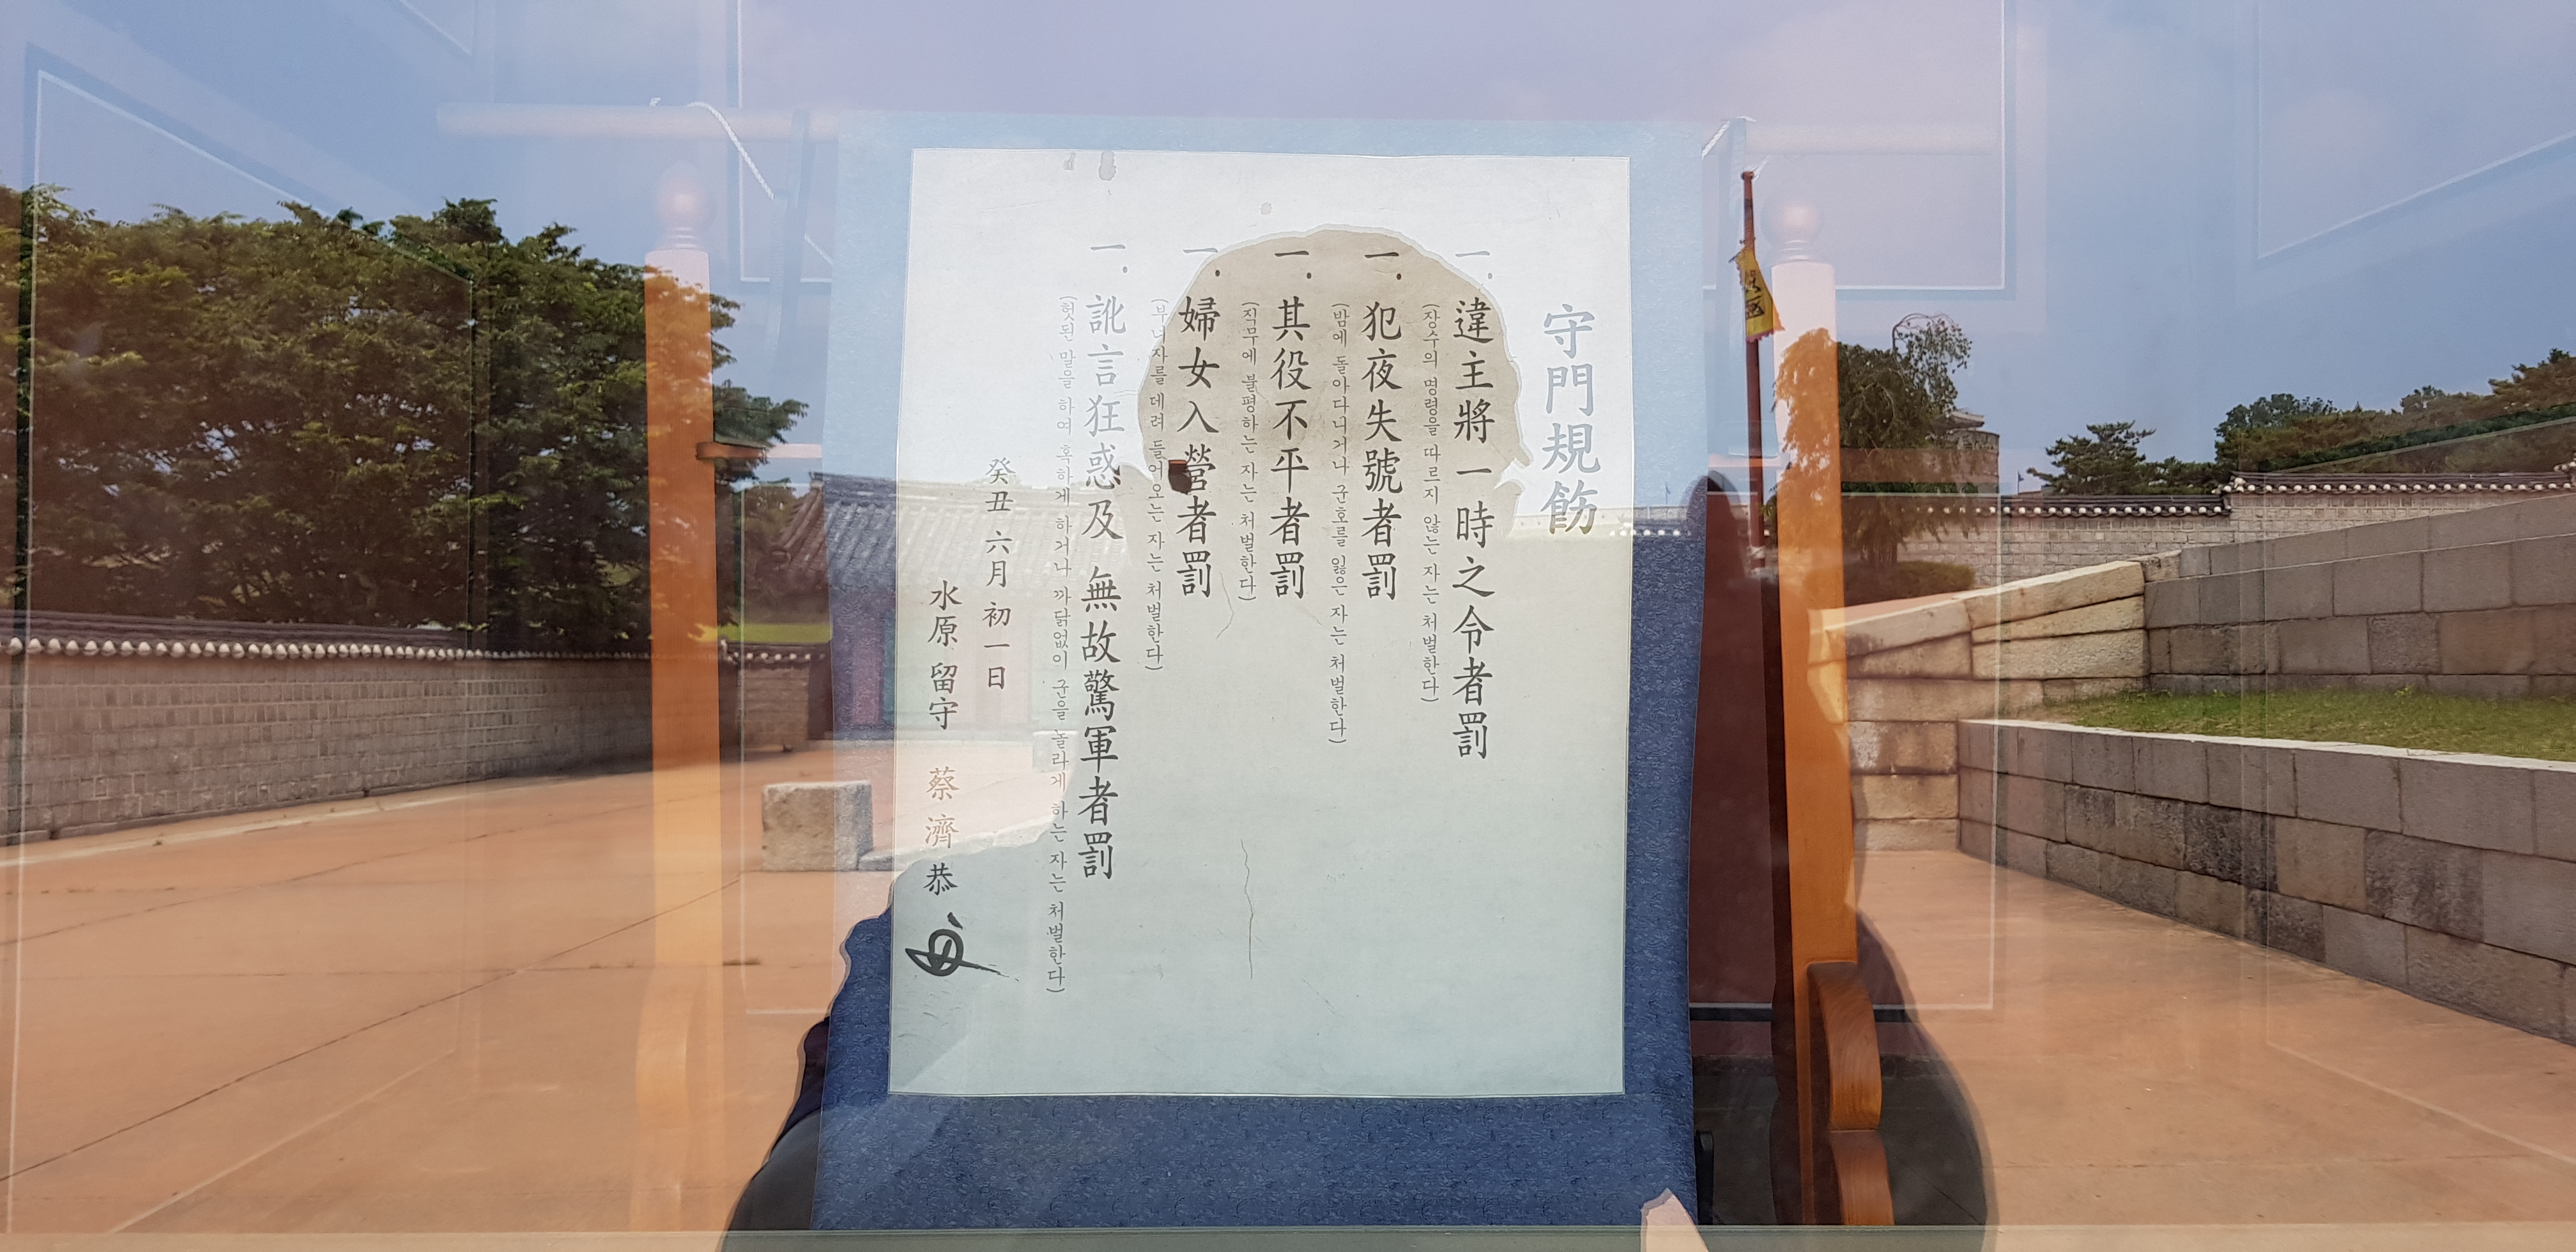 守門規飭
一. 違主將一時之令者罰
(장수의 명령을 따르지 않는 자는 처벌한다)
一. 犯夜失號者罰
(밤에 돌아다니거나 군호를 잃은 자는 처벌한다)
一. 其役不平者罰
(직무에 불평하는 자는 처벌한다)
一. 婦女入營者罰
(부녀자를 데려 들어오는 자는 처벌한다)
一. 訛言狂惑及 無故驚軍者罰
(헛된 말을 하여 혹하게 하거나 까닭없이 군을 놀라게 하는 자는 처벌한다)
癸丑 六月 初一日
水原 留守 蔡濟恭